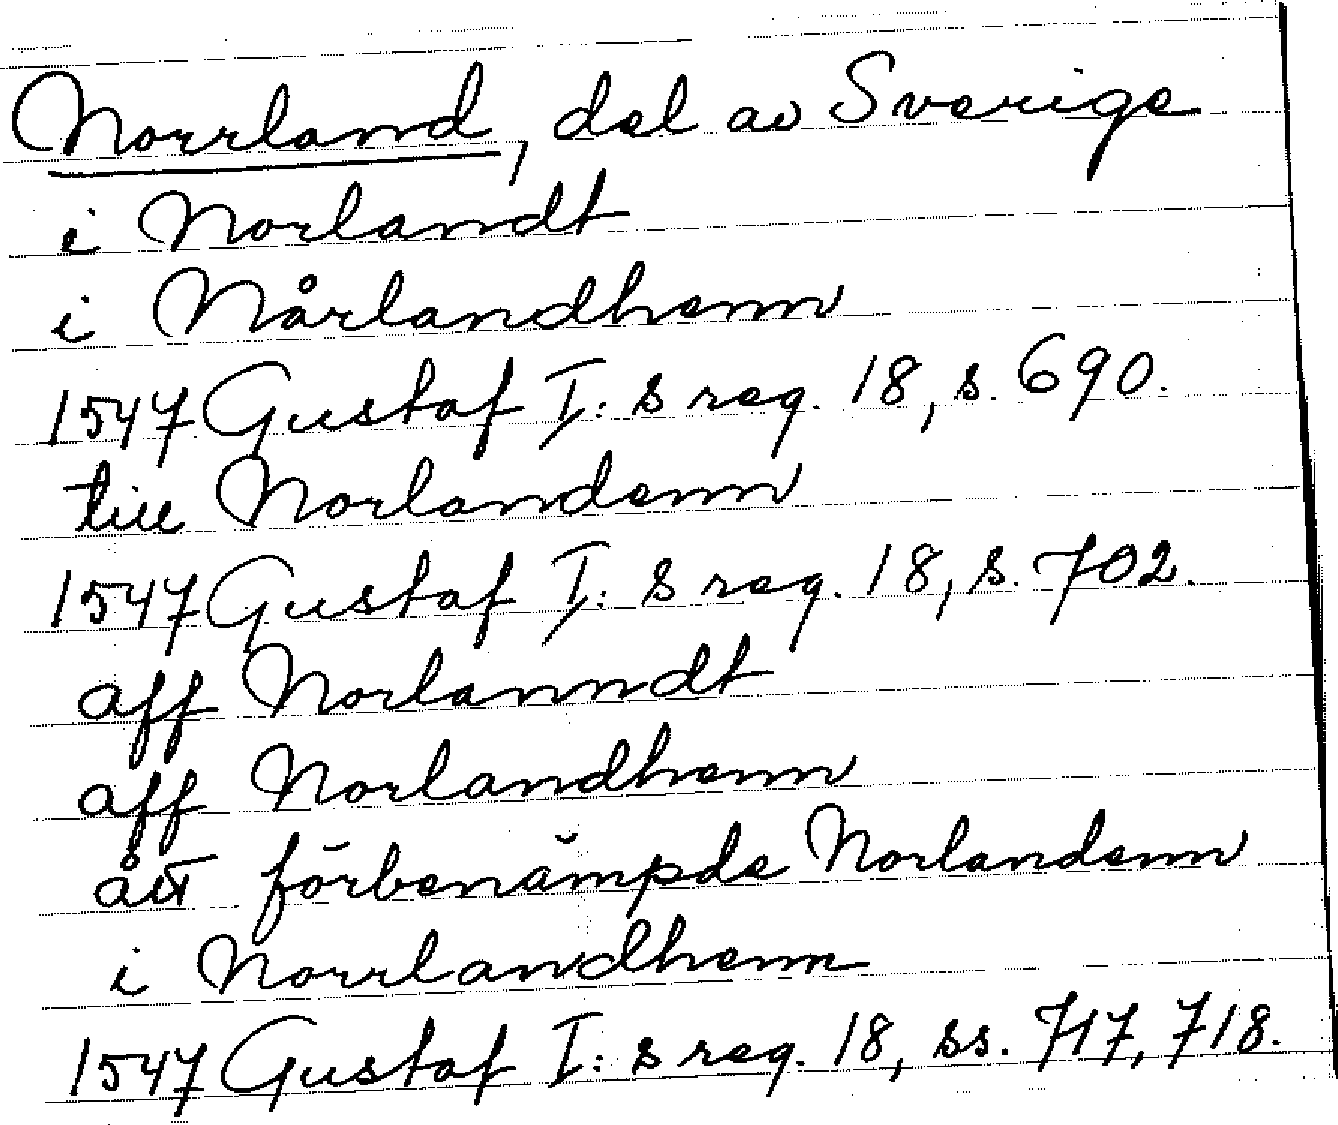 Norrland, del av Sverige
i Norlandt
i Nårlandhenn
1547 Gustaf I:s reg. 18, s. 690.
till Norlandenn
1547 Gustaf I:s reg. 18, s. 702.
aff Norlanndt
aff Norlandhenn
ått förbenämpde Norlandenn
i Norrlandhenn
1547 Gustaf I:s reg. 18, ss. 717, 718.